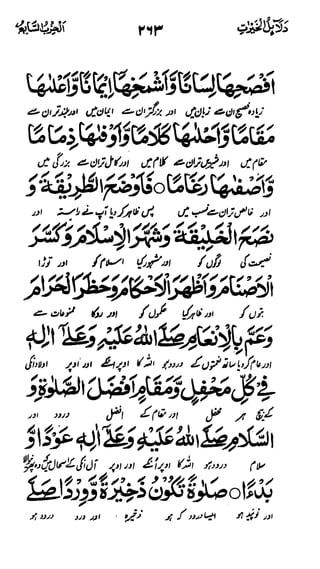 دلائل الخیرات ۲۶۳ الحزب السابع
اَفْصَحِهَا لِسَانًا وَّاَشْمَخِهَا اِيْمَانًا وَّاَعْلٰهَا
زیادہ فصیح ان سے زبان میں اور بزرگتر ان سے ایمان میں اور بلند تر ان سے
مَقَامًا وَّاَحْلٰهَا كَلَامًا وَّاَوْفٰهَا ذِمَامًا
مقام میں اور شیریں تر ان سے کلام میں اور کامل تر ان سے بزرگی میں
وَّاَصْفٰهَا رَغَامًا ○ فَاَوْضَحَ الطَّرِيْقَةَ وَ
اور خالص تر ان سے نسب میں پس ظاہر کر دیا آپ نے راستہ اور
نَصَحَ الْخَلِيْقَةَ وَشَهَّرَ الْاِسْلَامَ وَكَسَّرَ
نصیحت کی لوگوں کو اور مشہور کیا اسلام کو اور توڑا
الْاَصْنَامَ وَاَظْهَرَ الْاَحْكَامَ وَحَظَرَ الْحَرَامَ
بتوں کو اور ظاہر کیا حکموں کو اور روکا ممنوعات سے
وَعَمَّ بِالْاِنْعَامِ صَلَّى اللهُ عَلَيْهِ وَعَلٰٓى اٰلِهٖ
اور عام کر دیا ساتھ نعمتوں کے درود ہو اللہ کا اوپر انکے اور اوپر اولاد انکی
فِيْ كُلِّ مَحْفِلٍ وَّمَقَامٍ اَفْضَلَ الصَّلٰوةِ وَ
کے بیچ ہر محفل اور مقام کے افضل درود اور
السَّلَامِ صَلَّى اللهُ عَلَيْهِ وَعَلٰٓى اٰلِهٖ عَوْدًا وَّ
سلام درود ہو اللہ کا اوپر انکے اور اوپر آل انکی کے
بَدْءًا ○ صَلٰوةً تَكُوْنُ ذَخِيْرَةً وَّوِرْدًا صَلَّى
اور نو پید ہو ایسا درود کہ ہو ذخیرہ اور ورد درود ہو